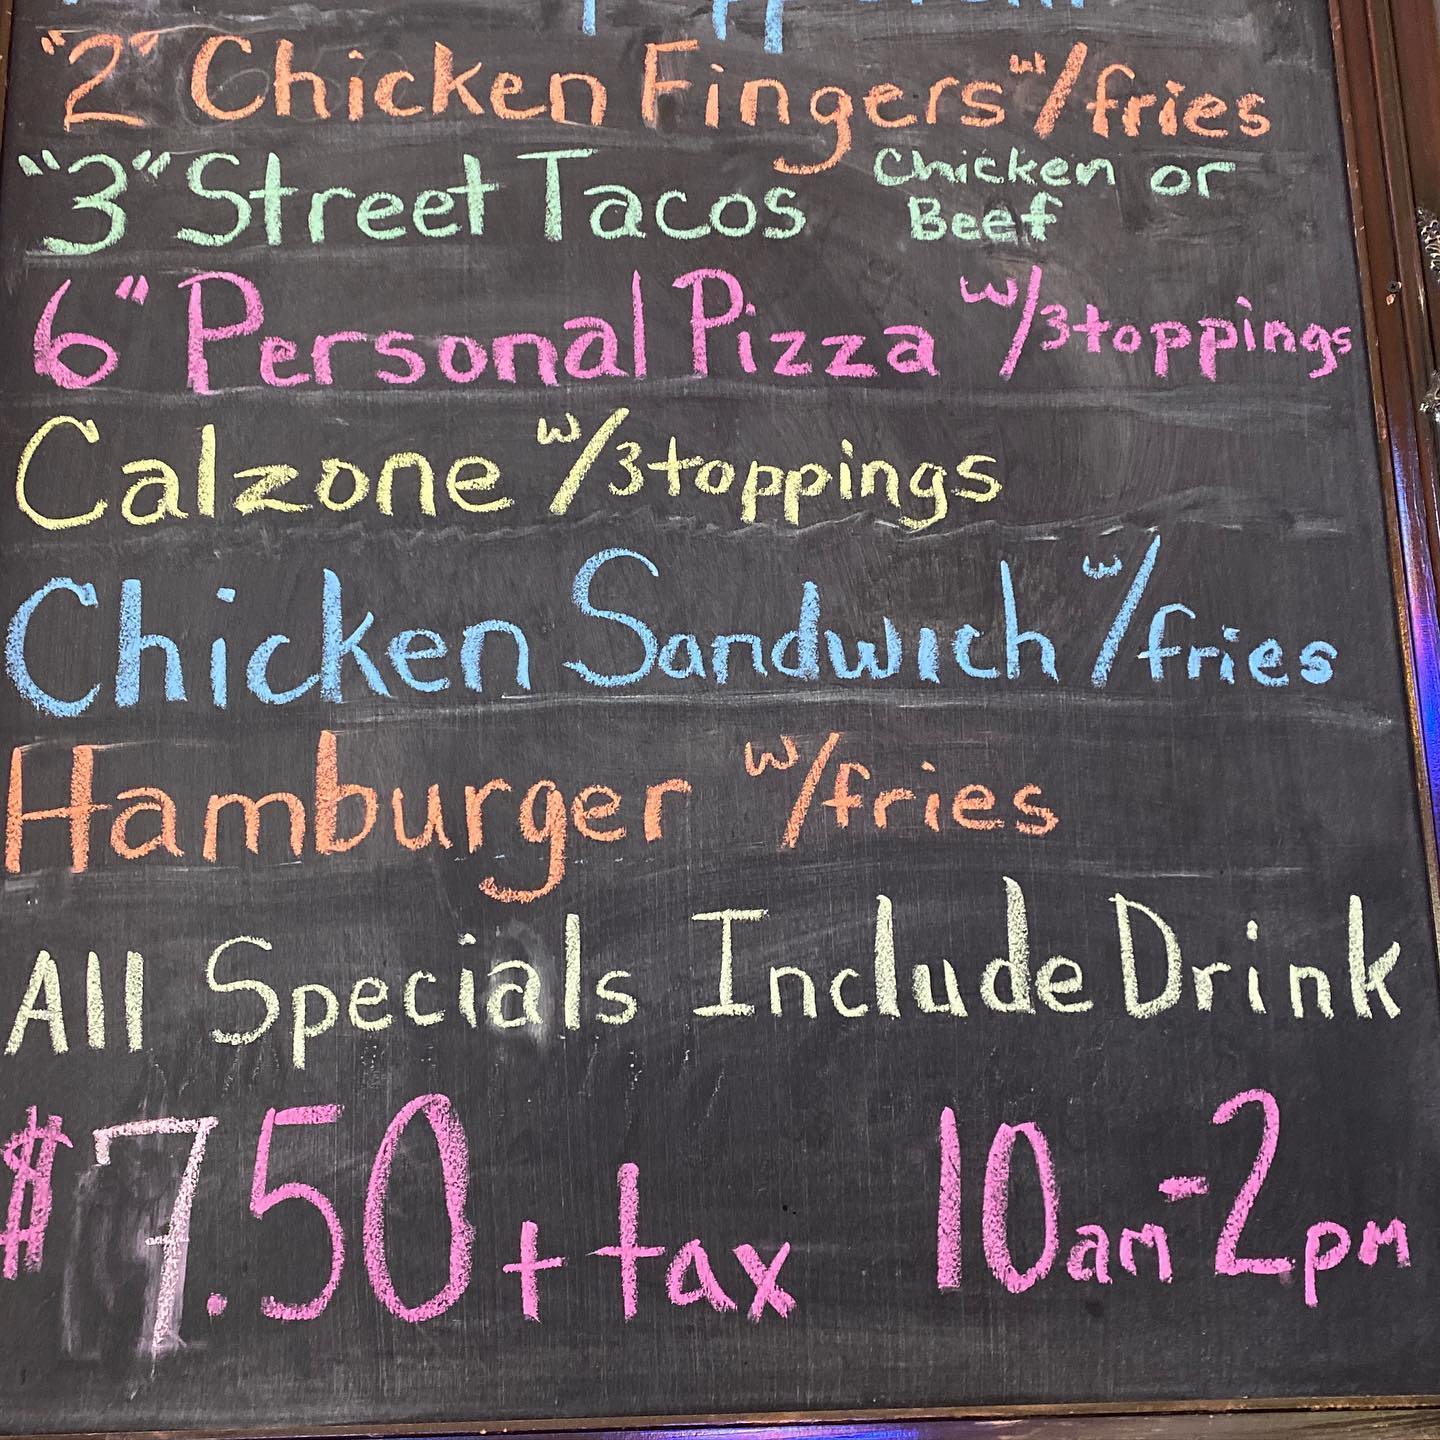 "2" Chicken Fingers w/fries
"3" Street Tacos Chicken or
Beef
6" Personal Pizza w/3 toppings
Calzone w/3 toppings
Chicken Sandwich w/fries
Hamburger w/fries
All Specials Include Drink
$7.50 + tax 10am-2pm